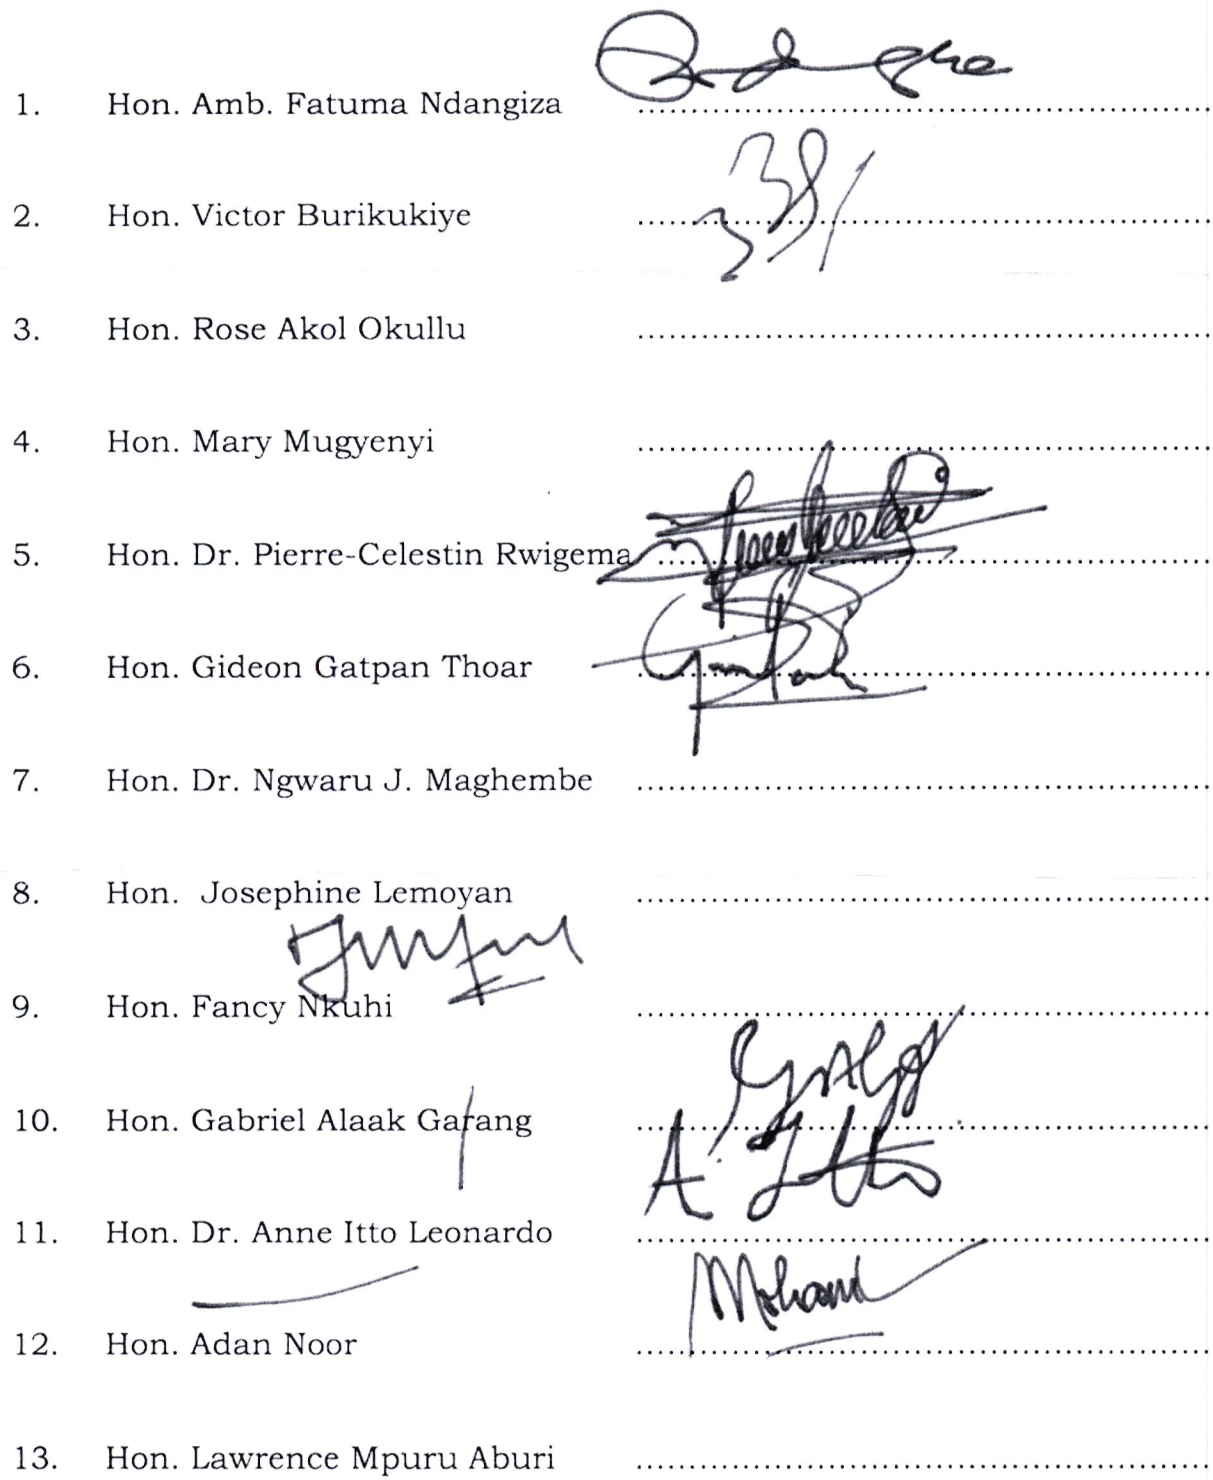 1. Hon. Amb. Fatuma Ndangiza ........................................
2. Hon. Victor Burikukiye ........................................
3. Hon. Rose Akol Okullu ........................................
4. Hon. Mary Mugyenyi ........................................
5. Hon. Dr. Pierre-Celestin Rwigema ........................................
6. Hon. Gideon Gatpan Thoar ........................................
7. Hon. Dr. Ngwaru J. Maghembe ........................................
8. Hon. Josephine Lemoyan ........................................
9. Hon. Fancy Nkuhi ........................................
10. Hon. Gabriel Alaak Garang ........................................
A. Itto
11. Hon. Dr. Anne Itto Leonardo ........................................
12. Hon. Adan Noor ........................................
13. Hon. Lawrence Mpuru Aburi ........................................